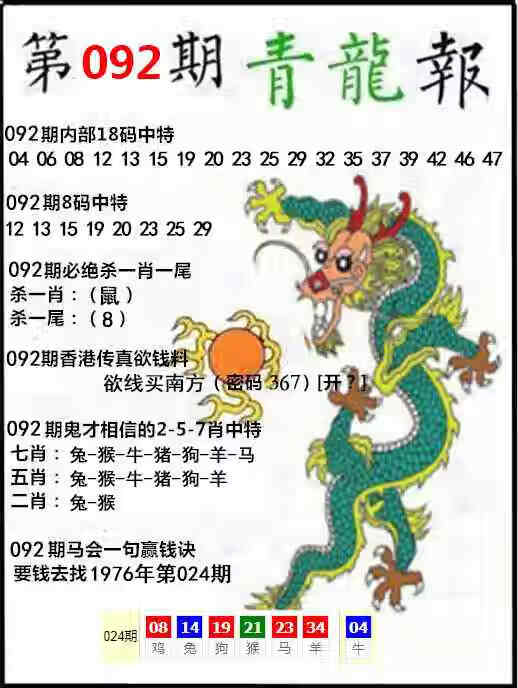 第092期 青龍報
092期内部18码中特
04 06 08 12 13 15 19 20 23 25 29 32 35 37 39 42 46 47
092期8码中特
12 13 15 19 20 23 25 29
092期必绝杀一肖一尾
杀一肖：（鼠）
杀一尾：（8）
092期香港传真欲钱料
欲线买南方（密码 367）[开？]
092期鬼才相信的2-5-7肖中特
七肖：兔-猴-牛-猪-狗-羊-马
五肖：兔-猴-牛-猪-狗-羊
二肖：兔-猴
092期马会一句赢钱诀
要钱去找1976年第024期
024期 08 14 19 21 23 34 04
鸡 兔 狗 猴 马 羊 牛